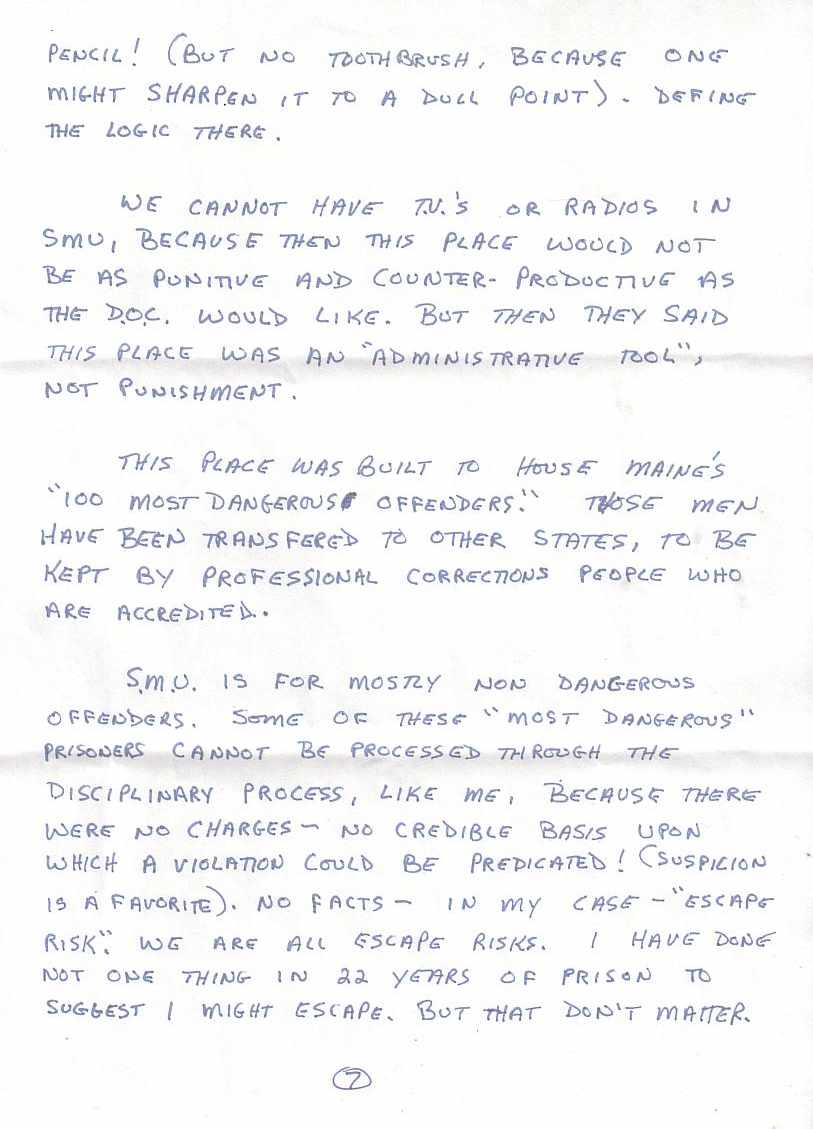 PENCIL! (BUT NO TOOTHBRUSH, BECAUSE ONE
MIGHT SHARPEN IT TO A DULL POINT). DEFINE
THE LOGIC THERE.
WE CANNOT HAVE T.V.'S OR RADIOS IN
SMU, BECAUSE THEN THIS PLACE WOULD NOT
BE AS PUNITIVE AND COUNTER-PRODUCTIVE AS
THE D.O.C. WOULD LIKE. BUT THEN THEY SAID
THIS PLACE WAS AN "ADMINISTRATIVE TOOL",
NOT PUNISHMENT.
THIS PLACE WAS BUILT TO HOUSE MAINE'S
"100 MOST DANGEROUS OFFENDERS." THOSE MEN
HAVE BEEN TRANSFERED TO OTHER STATES, TO BE
KEPT BY PROFESSIONAL CORRECTIONS PEOPLE WHO
ARE ACCREDITED.
S.M.U. IS FOR MOSTLY NON DANGEROUS
OFFENDERS. SOME OF THESE "MOST DANGEROUS"
PRISONERS CANNOT BE PROCESSED THROUGH THE
DISCIPLINARY PROCESS, LIKE ME, BECAUSE THERE
WERE NO CHARGES - NO CREDIBLE BASIS UPON
WHICH A VIOLATION COULD BE PREDICATED! (SUSPICION
IS A FAVORITE). NO FACTS - IN MY CASE - "ESCAPE
RISK". WE ARE ALL ESCAPE RISKS. I HAVE DONE
NOT ONE THING IN 22 YEARS OF PRISON TO
SUGGEST I MIGHT ESCAPE. BUT THAT DON'T MATTER.
7